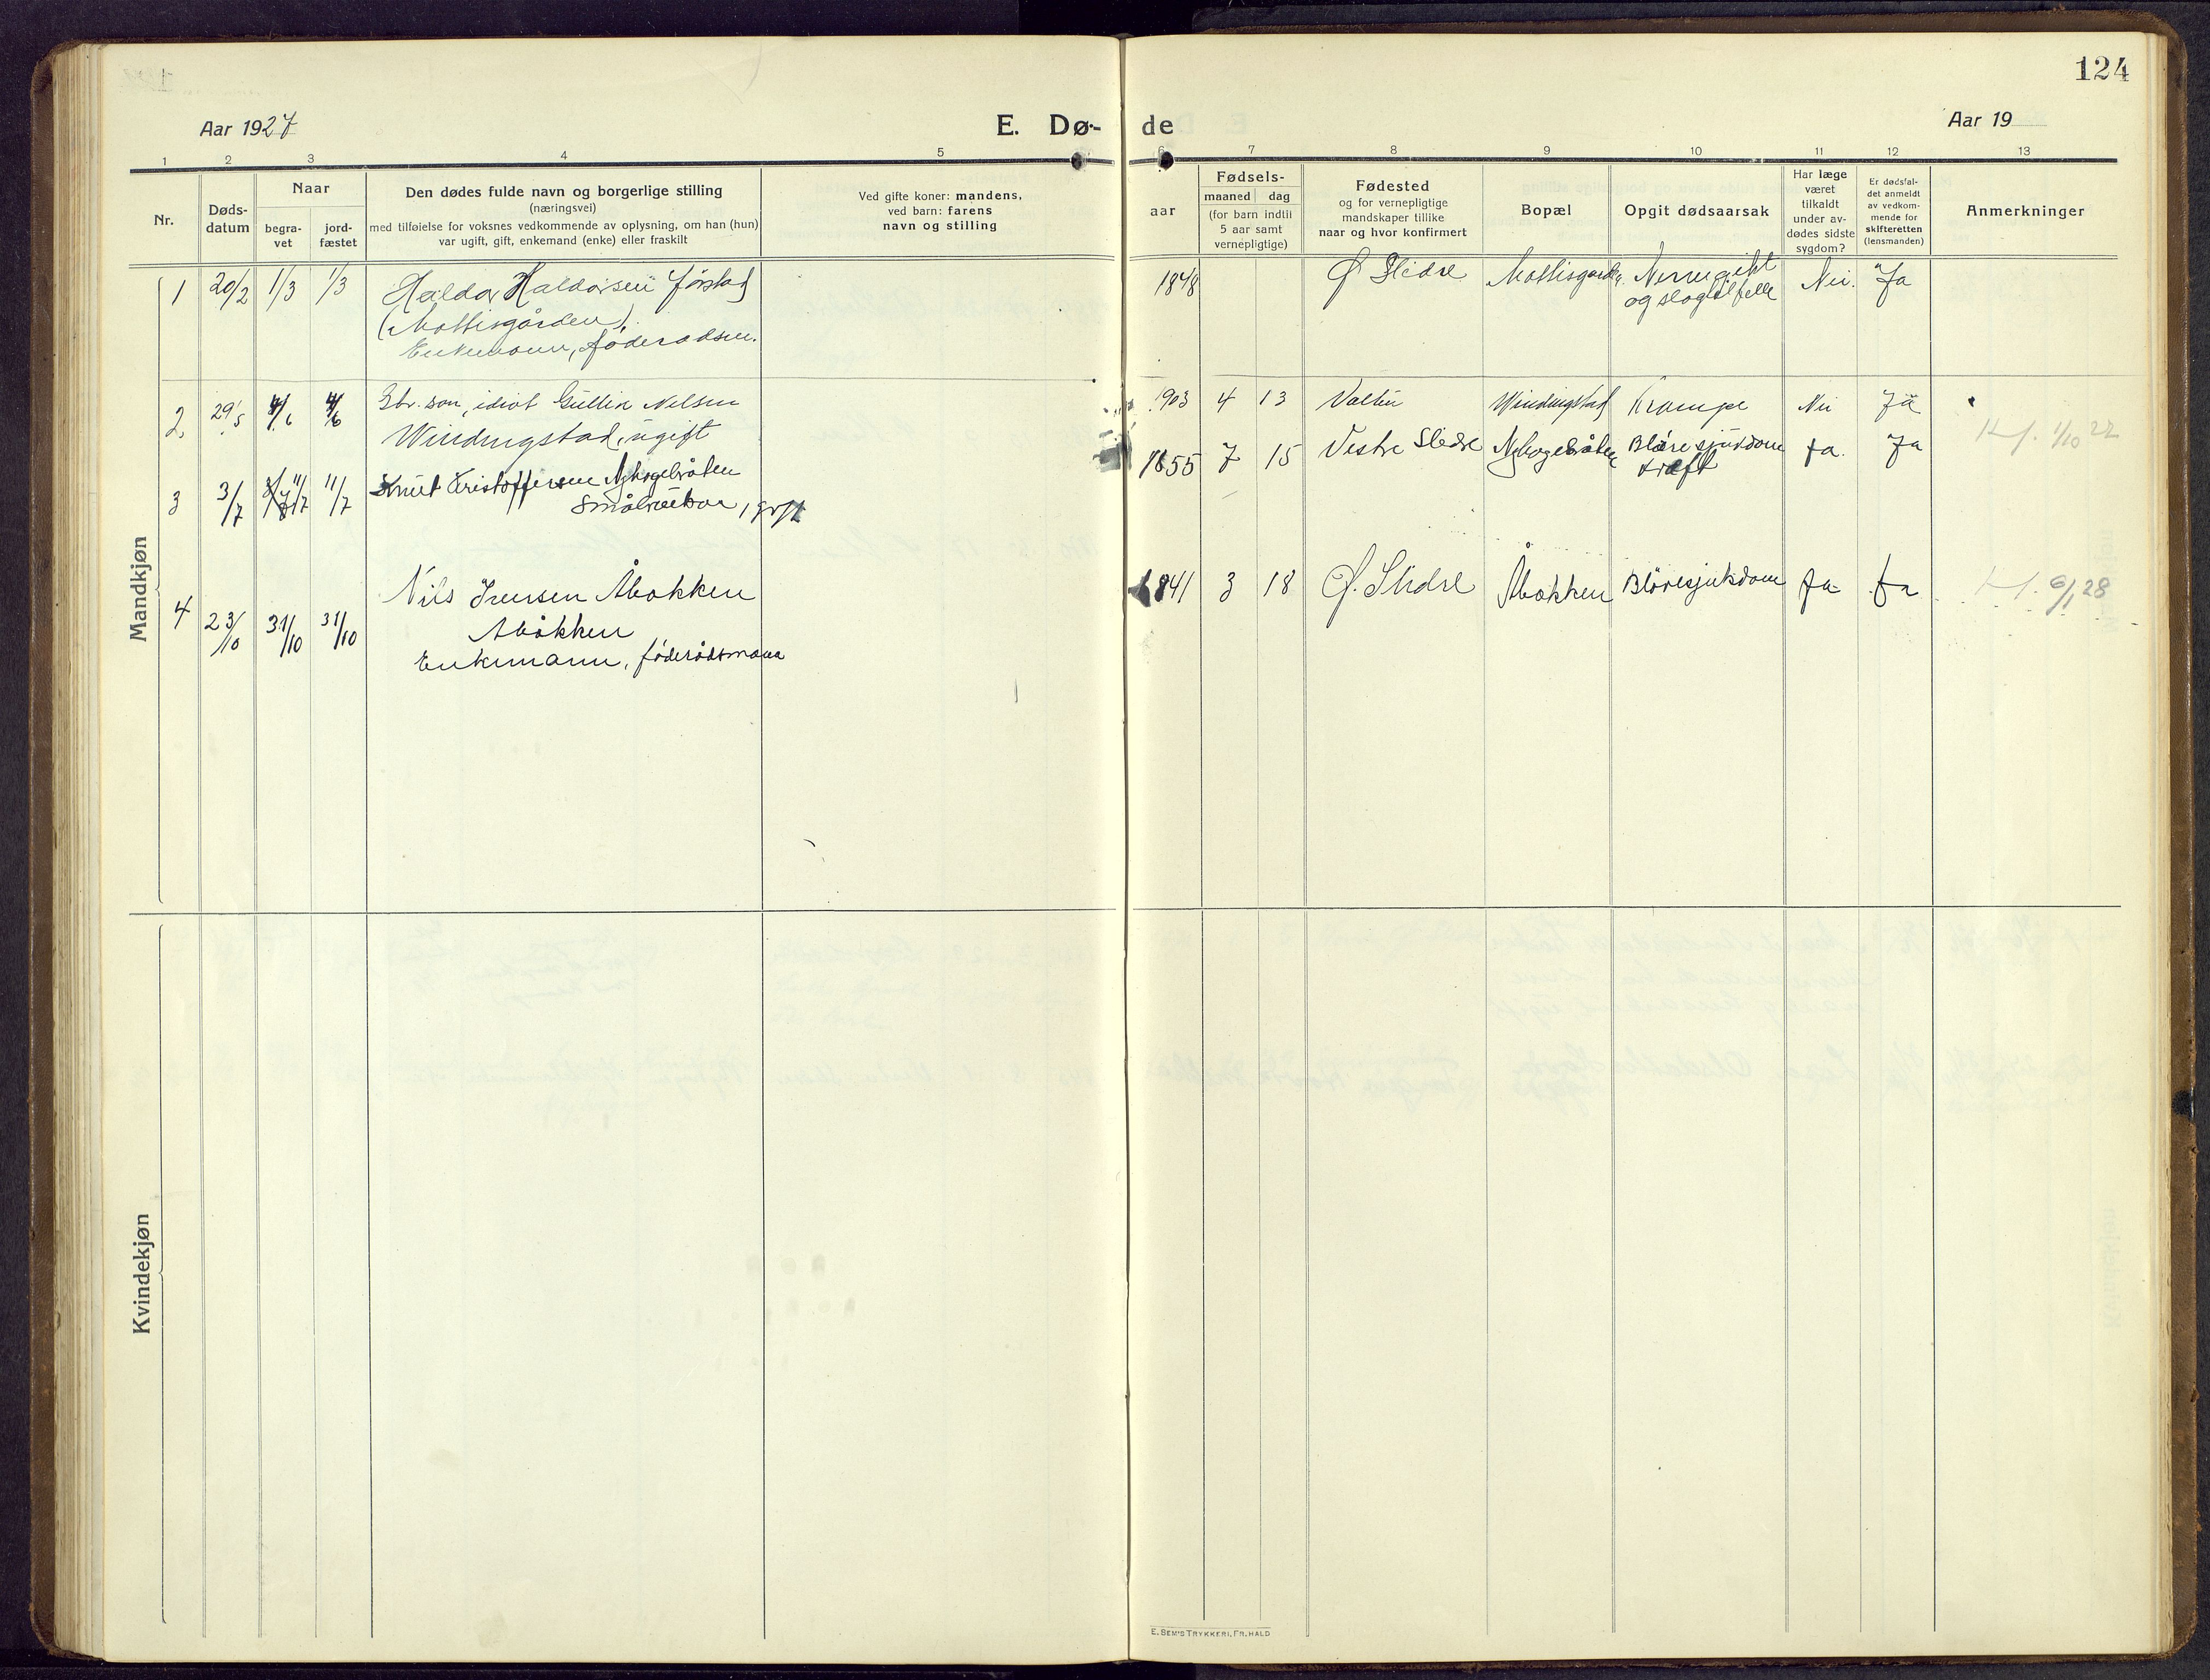 124
Aar 1927
E. Dø-
de
Aar 19
1 2 3 4 5 6 7 8 9 10 11 12 13
Nr.
Døds-
datum
Naar
begra-
vet
jord-
fæstet
Den dødes fulde navn og borgerlige stilling
(næringsvei)
med tilføielse for voksnes vedkommende av oplysning, om han (hun)
var ugift, gift, enkemand (enke) eller fraskilt
Ved gifte koner: mandens,
ved barn: farens
navn og stilling
aar
Fødsels-
maaned dag
(for barn indtil
5 aar samt
vernepligtige)
Fødested
og for vernepligtige
mandskaper tillike
naar og hvor konfirmert
Bopæl
Opgit dødsaarsak
Har læge
været
tilkaldt
under av-
dødes sidste
sygdom?
Er dødsfal-
det anmeldt
av vedkom-
mende for
skifteretten
(lensmanden)
Anmerkninger
Mandkjøn
1 20/2 1/3 1/3 Haldor Haldorsen
(Mottisgården)
Enkemann, føderådsm.
1848 Ø Slidre Mottisgården Nervegikt
og slagtilfelle
Nei. Ja
2 29/5 4/6 4/6 Gbr. søn, idiot Gullik Nilsen
Windingstad, ugift
1903 4 13 Windingstad Krampe Nei Ja
3 3/7 11/7 11/7 Knut Kristoffersen Nyhagebråten
Småbruker, gift
1855 7 15 Vestre Slidre Nyhagebråten Blæresjukdom
kræft
Ja. Ja
4 23/10 31/10 31/10 Nils Iversen Åbakken
Åbakken
Enkemann, føderådsmann
1841 3 18 Ø. Slidre Åbakken Blæresjukdom Ja Ja 6/1 28
Kvindekjøn
E. SEM'S TRYKKERI, FR.HALD